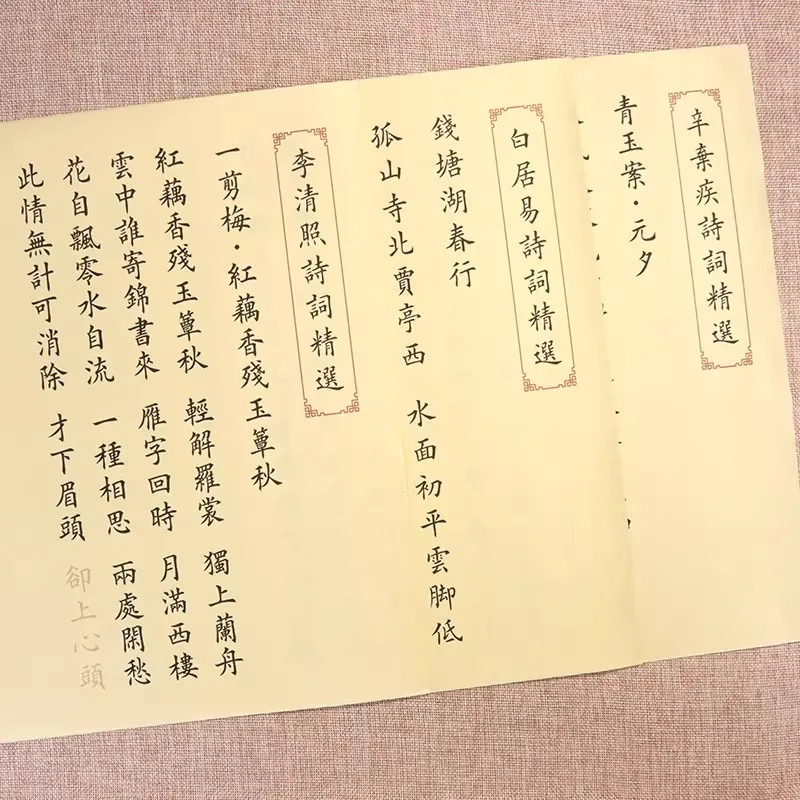 辛棄疾詩詞精選
青玉案·元夕
白居易詩詞精選
錢塘湖春行
孤山寺北賈亭西 水面初平雲脚低
李清照詩詞精選
一剪梅·紅藕香殘玉簟秋
紅藕香殘玉簟秋 輕解羅裳 獨上蘭舟
雲中誰寄錦書來 雁字回時 月滿西樓
花自飄零水自流 一種相思 兩處閑愁
此情無計可消除 才下眉頭 卻上心頭